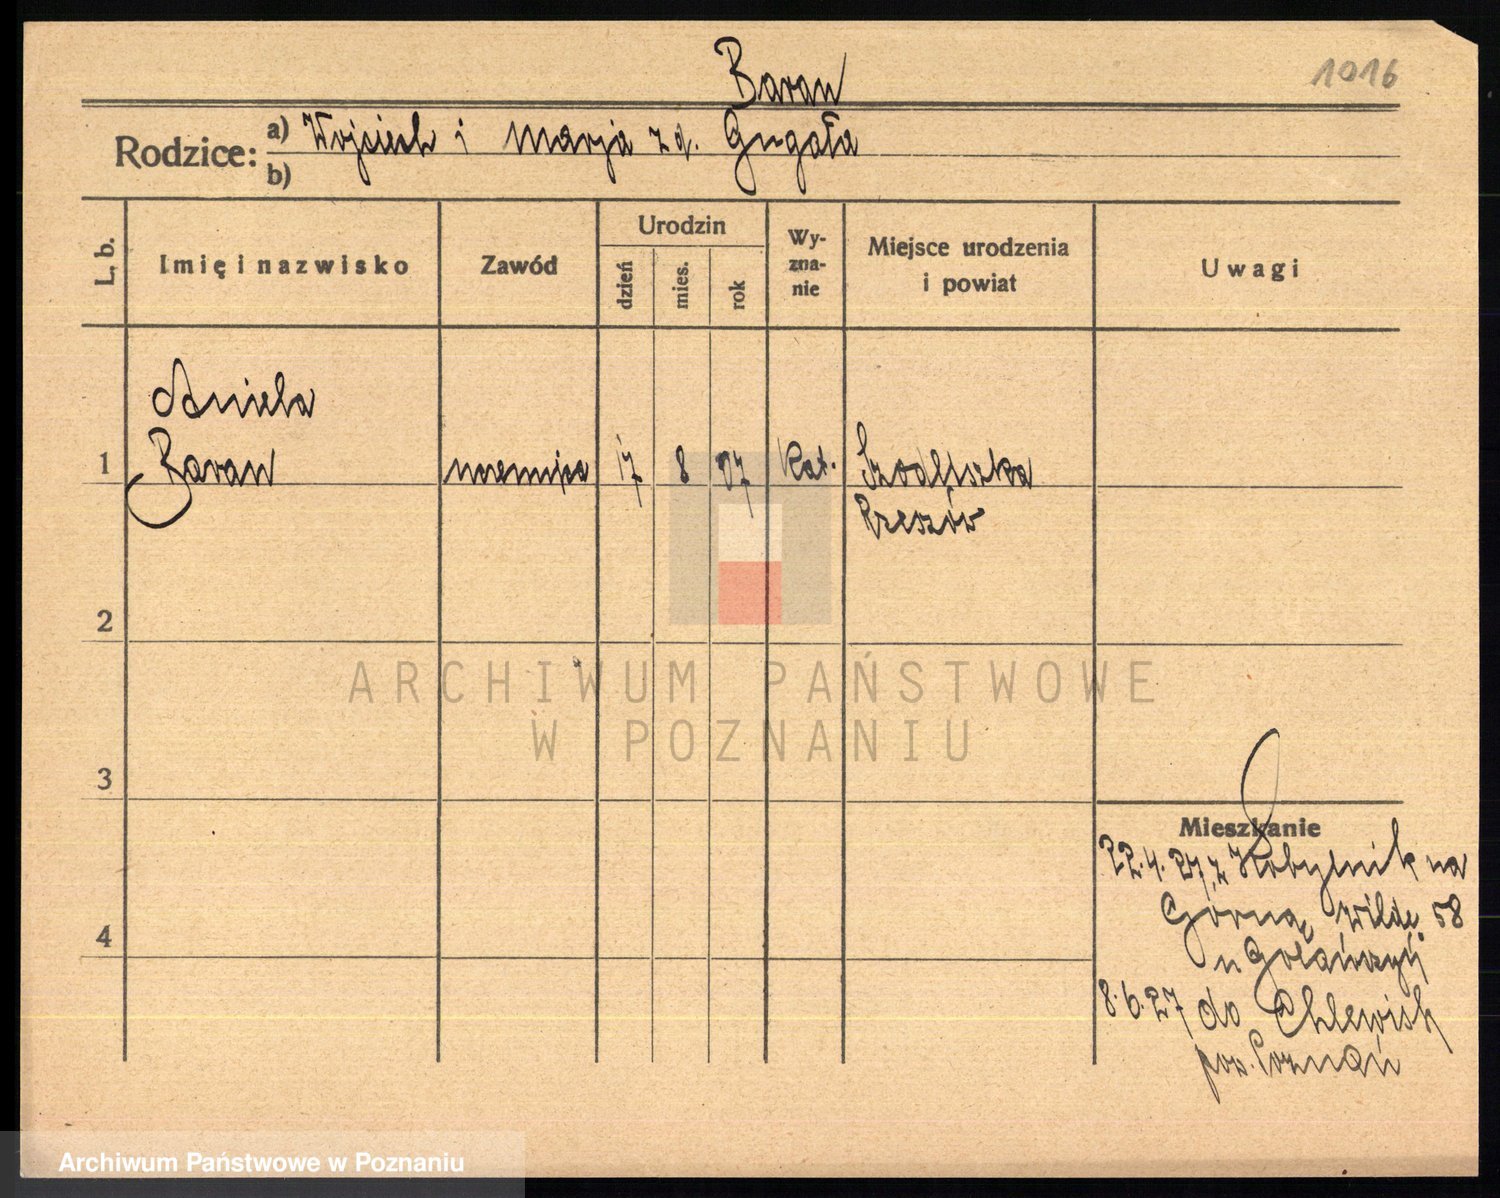 Baran
1016
Rodzice: a) Wojciech i Marja z d. Gugała
b)
L. b.
Imię i nazwisko
Zawód
Urodzin
dzień
mies.
rok
Wy-
zna-
nie
Miejsce urodzenia
i powiat
Uwagi
Aniela
1 Baran 17 8 07 Kat.
Rzeszów
2
ARCHIWUM PAŃSTWOWE
W POZNANIU
3
Mieszkanie
22.4.27 z Kobylnik na
Górną Wildę 58
u
4
8.6.27 do Chlewisk
pow. Poznań
Archiwum Państwowe w Poznaniu